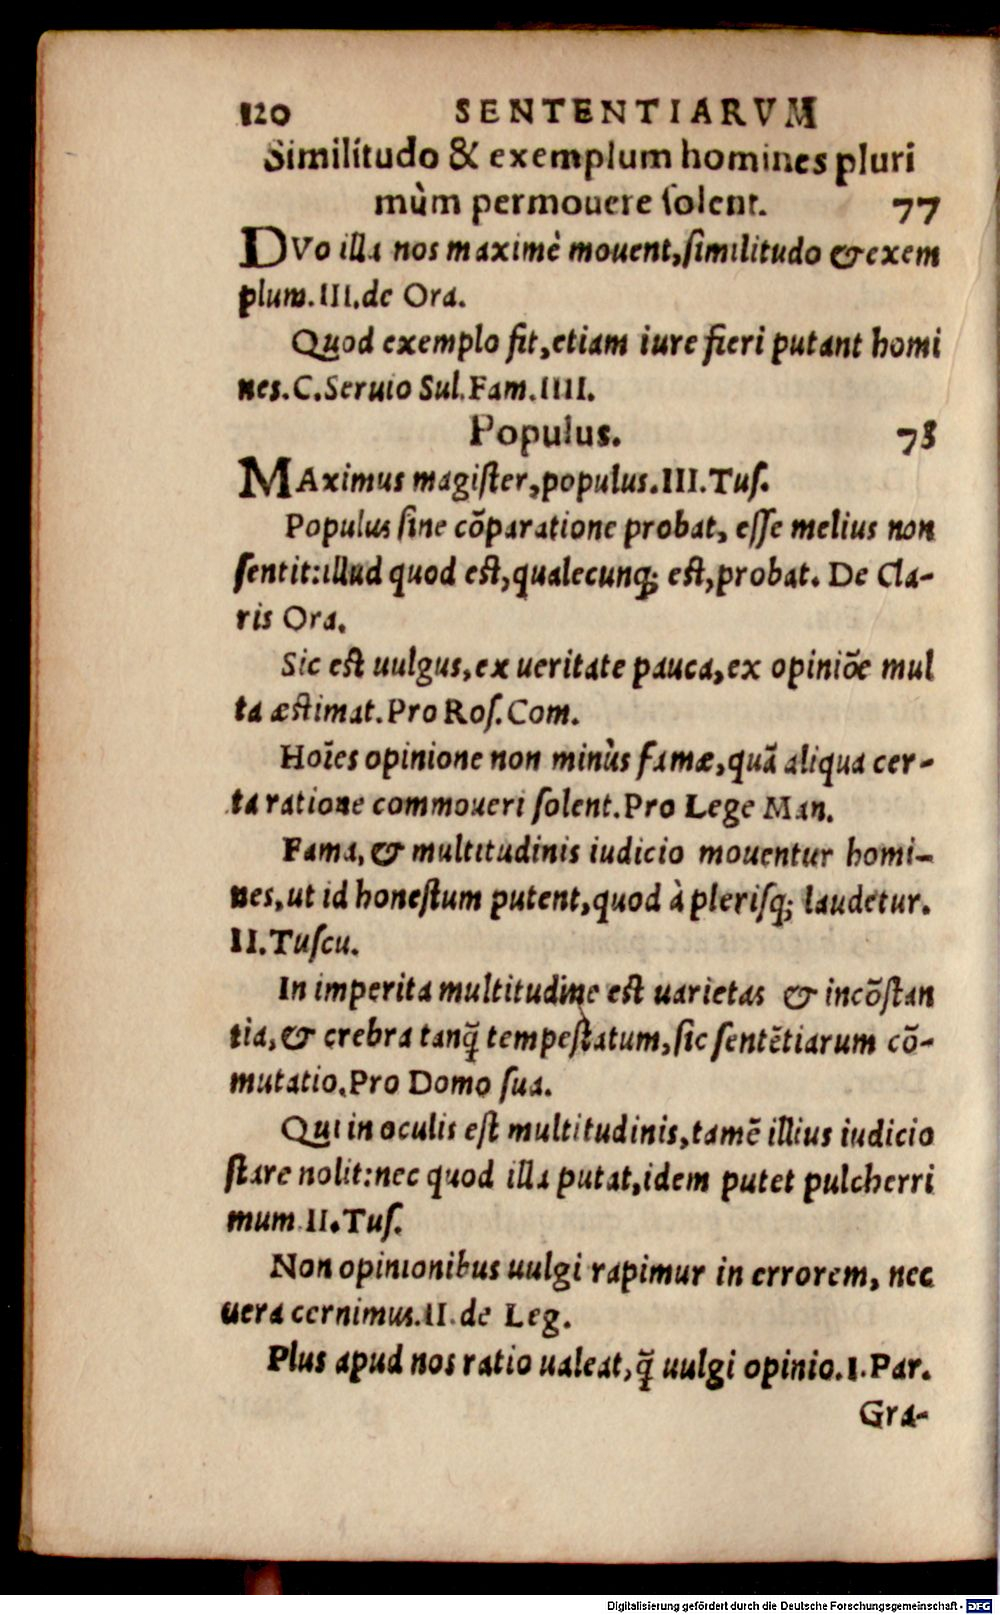 120 SENTENTIARVM
Similitudo & exemplum homines pluri
mùm permouere ſolent. 77
DVo illa nos maximè mouent, ſimilitudo & exem
plum. III. de Ora.
Quod exemplo fit, etiam iure fieri putant homi
nes. C. Seruio Sul. Fam. IIII.
Populus. 78
MAximus magiſter, populus. III. Tuſ.
Populus ſine cõparatione probat, eſſe melius non
ſentit: illud quod eſt, qualecunq; eſt, probat. De Cla-
ris Ora.
Sic eſt uulgus, ex ueritate pauca, ex opiniõe mul
ta æſtimat. Pro Roſ. Com.
Hoĩes opinione non minùs famæ, quã aliqua cer-
ta ratione commoueri ſolent. Pro Lege Man.
Fama, & multitudinis iudicio mouentur homi-
nes, ut id honeſtum putent, quod à pleriſq; laudetur.
II. Tuſcu.
In imperita multitudine eſt uarietas & incõſtan
tia, & crebra tanq̃ tempeſtatum, ſic ſentẽtiarum cõ-
mutatio. Pro Domo ſua.
Qui in oculis eſt multitudinis, tamẽ illius iudicio
ſtare nolit: nec quod illa putat, idem putet pulcherri
mum II. Tuſ.
Non opinionibus uulgi rapimur in errorem, nec
uera cernimus. II. de Leg.
Plus apud nos ratio ualeat, q̃ uulgi opinio. I. Par.
Gra-
Digitalisierung gefördert durch die Deutsche Forschungsgemeinschaft - DFG